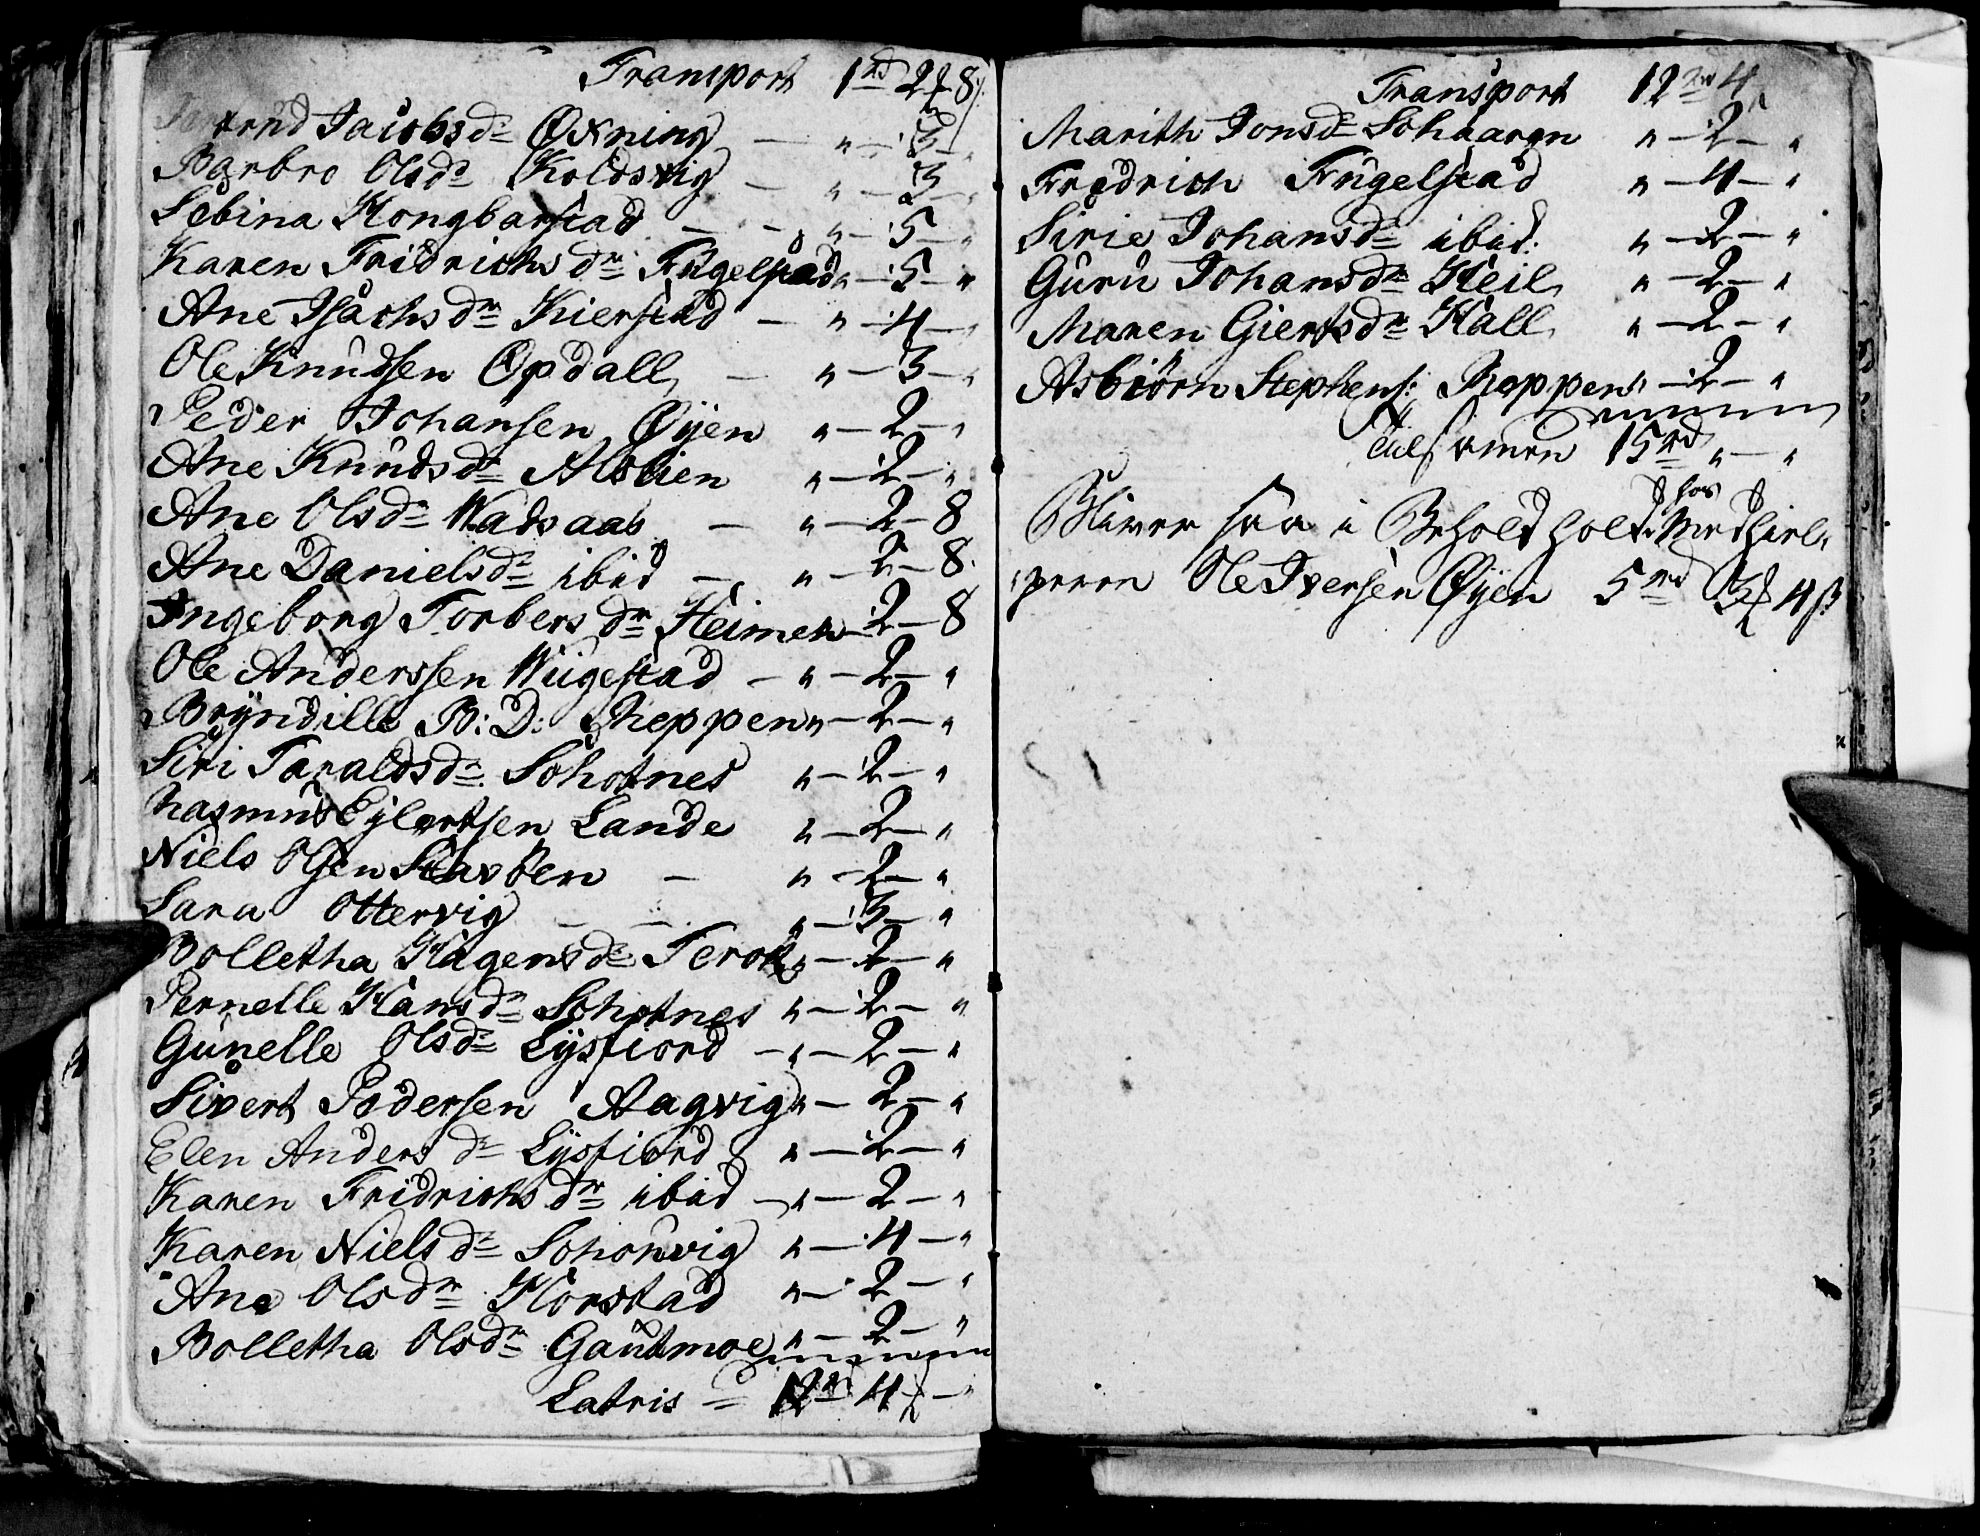 Transport 1 rd 2 - 8
Jacobsdr Øxning — " - 3 - "
Barbro Olsdr Koldsvig — " - 3 - "
Sebina Kongbarstad — " - 5 - "
Karen Fridrichsdr Fugelstad " - 5 - "
Ane Isachsdr Kierstad — " - 4 - "
Ole Knudsen Opdall — " - 3 - "
Peder Johansen Øyen " - 2 - "
Ane Knudsdr Alslien " - 2 - "
Ane Olsdr Wadsaas — " - 2 - 8
Ane Danielsdr ibid — " - 2 - 8
Ingeborg Torbersdr Heimen " - 2 - 8
Ole Anderssen Wiigestad — " - 2 - "
Bryndille B: D: Reppen " - 2 - "
Siri Taraldsdr Schotnes " - 2 - "
Rasmus Eylertsen Lande " - 2 - "
Niels Olsen — " - 2 - "
Sara Ottervig — " - 3 - "
Bolletha Hagensdr " - 2 - "
Pernelle Hansdr Schotnes " - 2 - "
Gunelle Olsdr Lysfiord — " - 2 - "
Sivert Pedersen Aagvig " - 2 - "
Elen Andersdr Lysfiord " - 2 - "
Karen Fridrichsdr ibid — " - 2 - "
Karen Nielsdr Schorvig " - 4 - "
Ane Olsdr Horstad " - 2 - "
Bolletha Olsdr Gautmoe " - 2 - "
Latris = 12 rd 4 - "
Transport 12 rd 4
Marith Jonsdr Schaaren " - 2 - "
Fredrich Fugelstad " - 4 - "
Sirie Johansdr ibid: " - 2 - "
Guru Johansdr Heil " - 2 - "
Maren Giertsdr Hall " - 2 - "
Asbiørn Stephens: Reppen " - 2 - "
tilsamen 15 rd " - "
Bliver saa i Behold hos Medhiel-
peren Ole Iversen Øyen 5 rd 3 4 ß